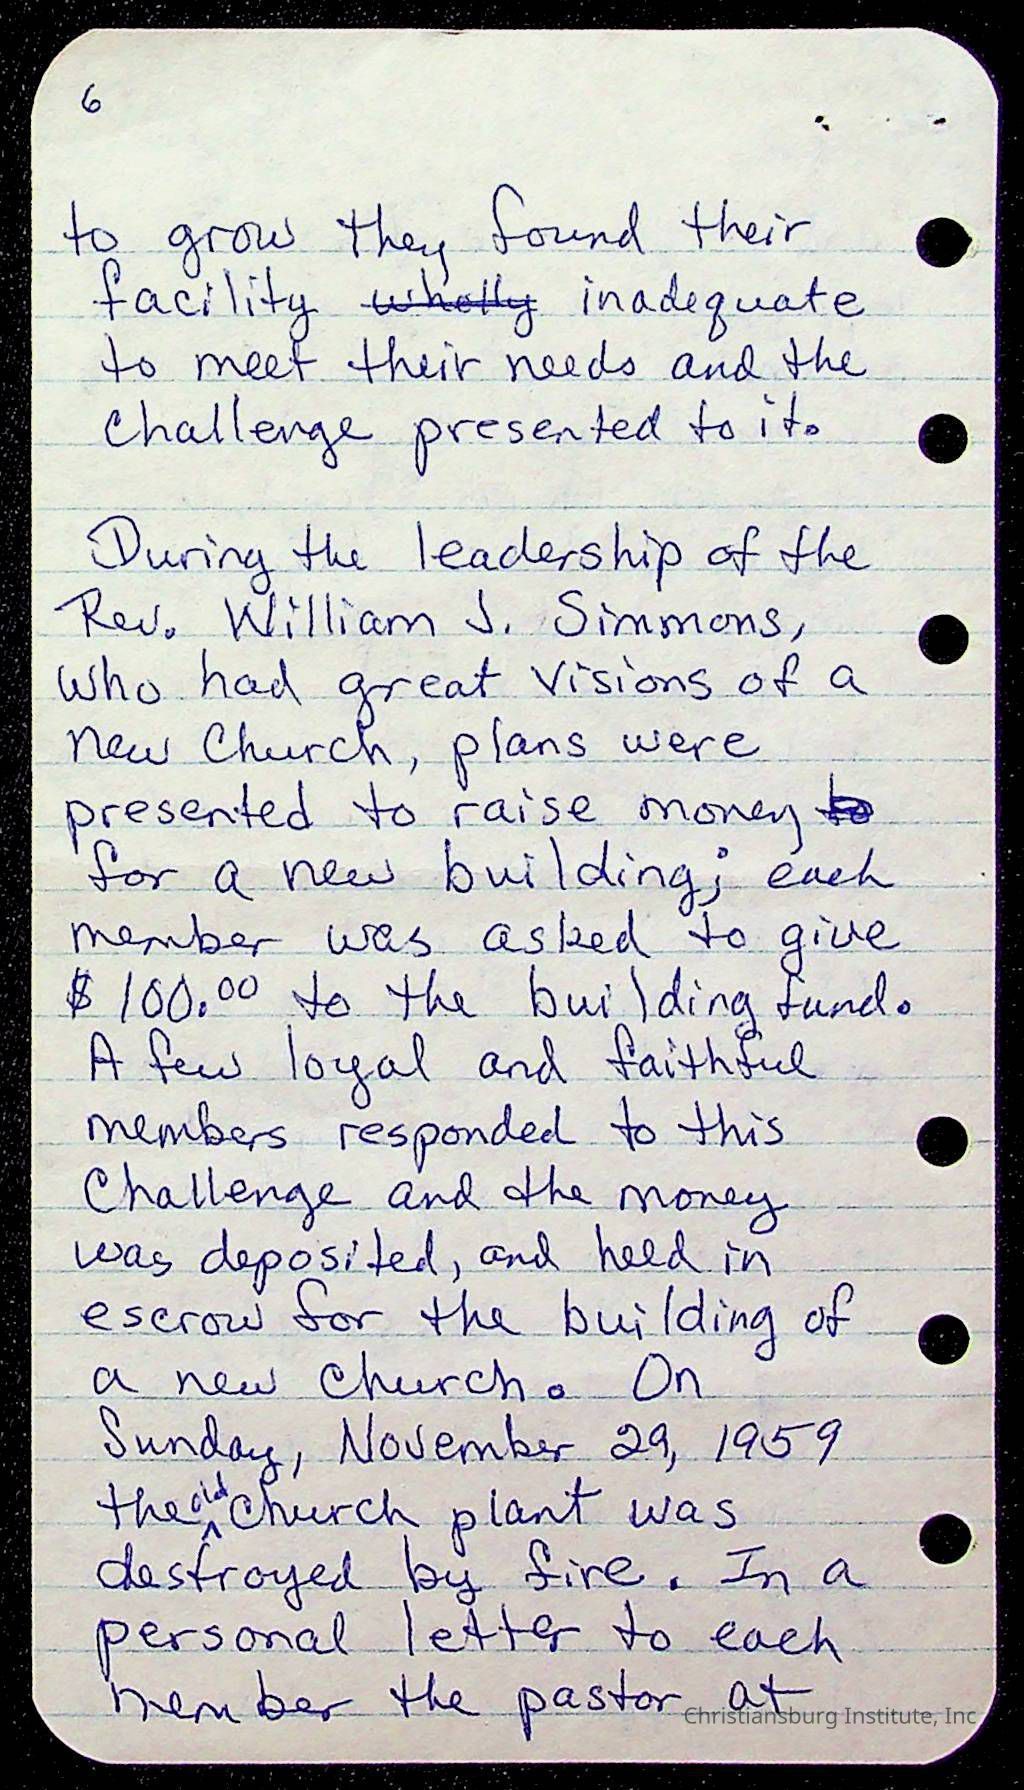 6
to grow they found their
facility wholly inadequate
to meet their needs and the
challenge presented to it.
During the leadership of the
Rev. William J. Simmons,
who had great visions of a
new Church, plans were
presented to raise money to
for a new building; each
member was asked to give
$100.00 to the building fund.
A few loyal and faithful
members responded to this
Challenge and the money
was deposited, and held in
escrow for the building of
a new church. On
Sunday, November 29, 1959
the old Church plant was
destroyed by fire. In a
personal letter to each
member the pastor at
Christiansburg Institute, Inc